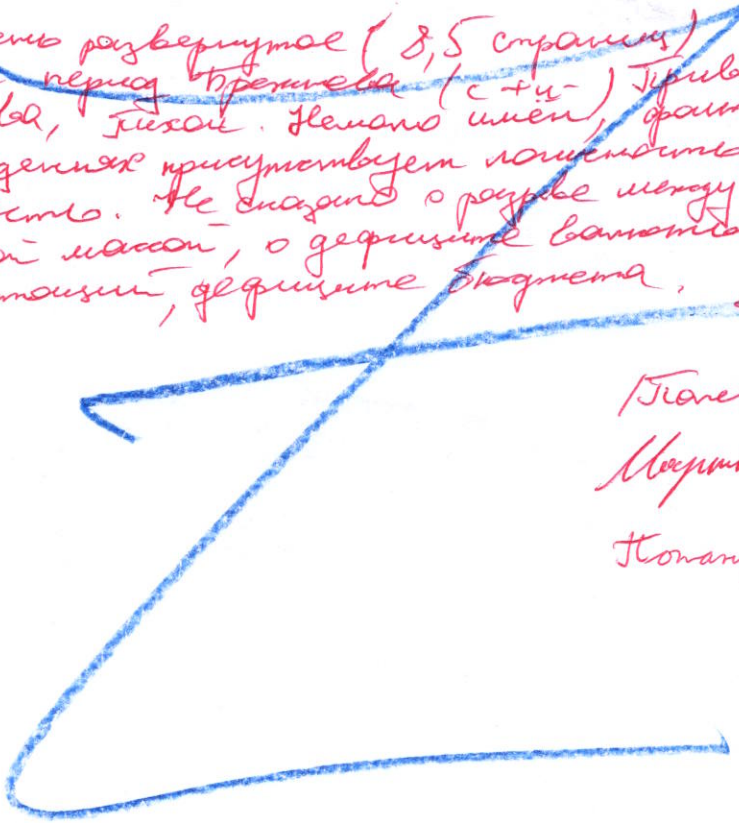 развернутое (8,5 страниц)
период Брежнева (с + и -) Прив
ва, Тихон. Немало имён, факт
дениях присутствует логичность
сть. Не сказано о разрыве между
ой массой, о дефиците валютно
дефиците бюджета.